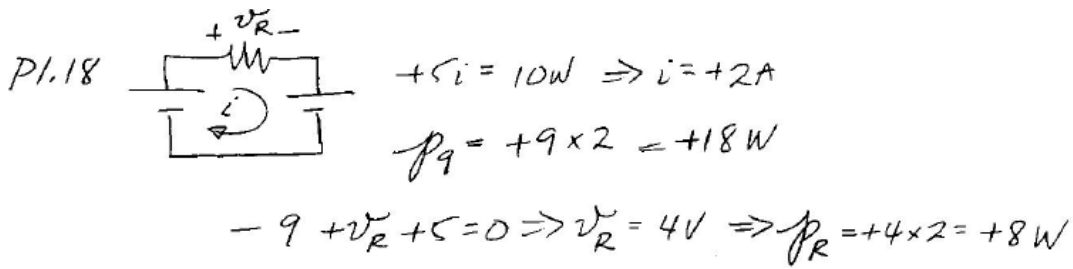 + v_R −
P1.18
i
+5i = 10W ⇒ i = +2A
p_9 = +9 × 2 = +18 W
− 9 + v_R + 5 = 0 ⇒ v_R = 4V ⇒ p_R = +4×2 = +8 W